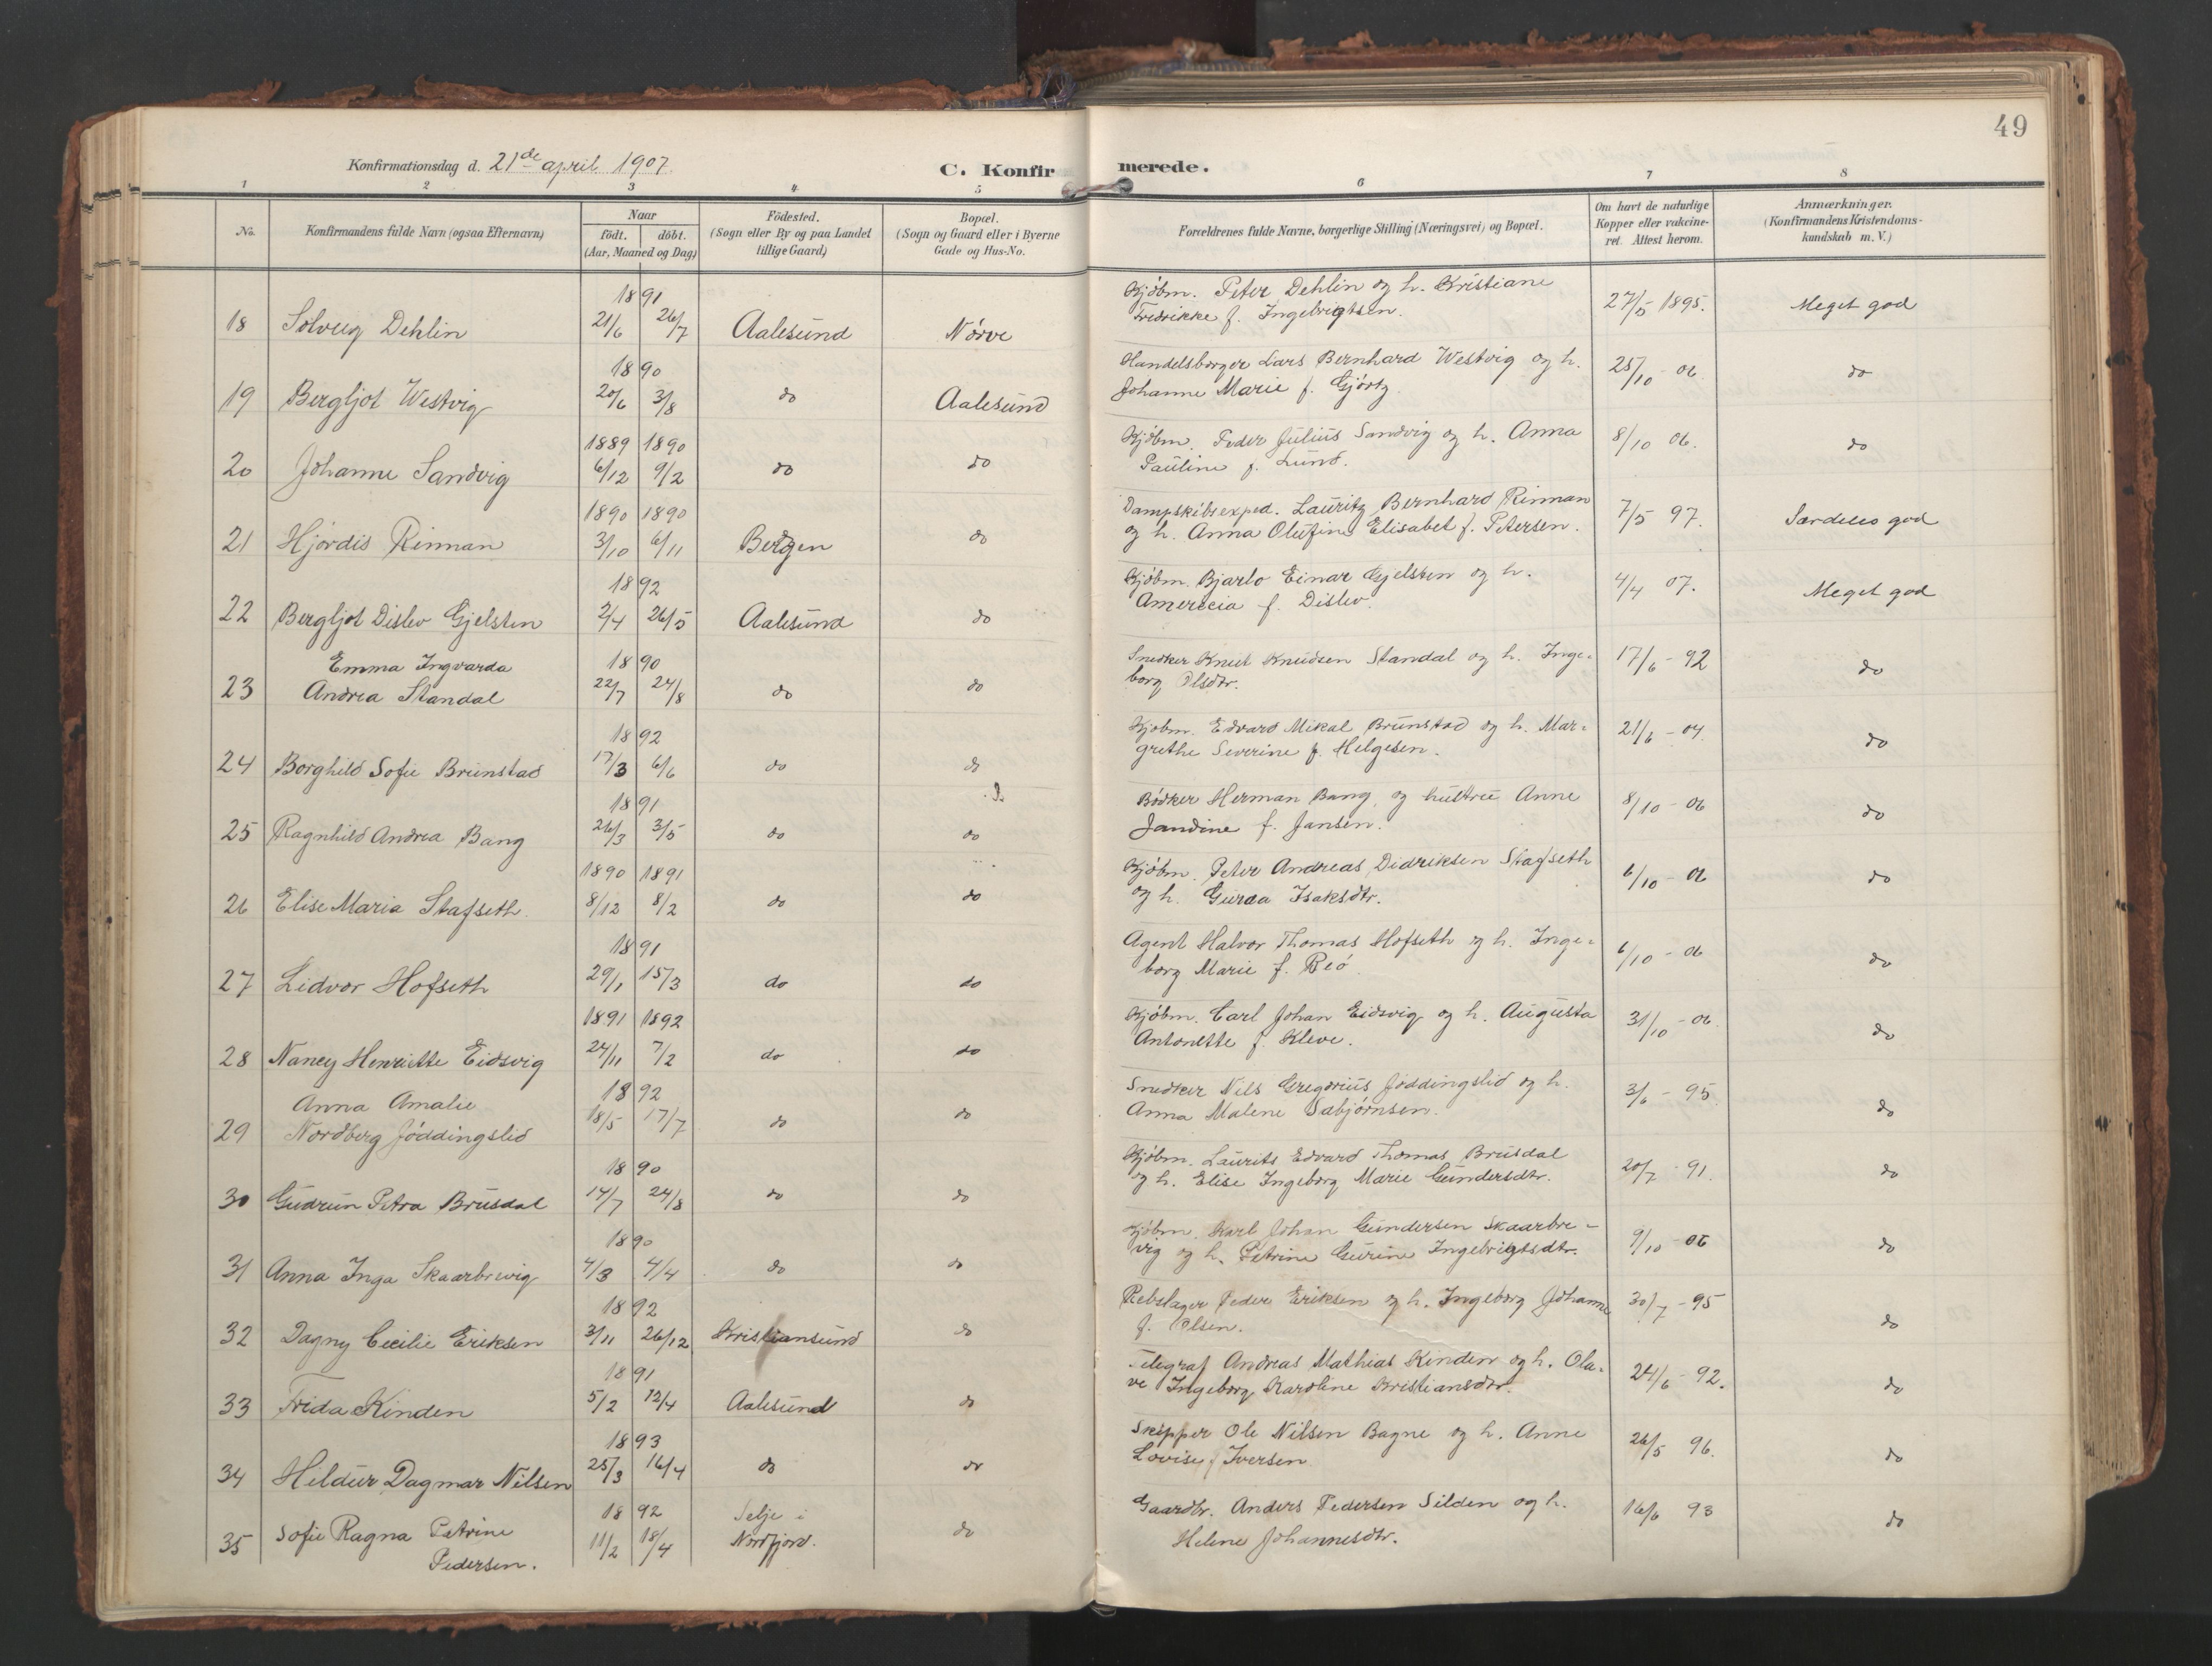 49
Konfirmationsdag d. 21de april 1907.
C. Konfirmerede.
1 2 3 4 5 6 7 8
No.
Konfirmandens fulde Navn (ogsaa Efternavn)
Naar
födt. döbt.
(Aar, Maaned og Dag)
Födested.
(Sogn eller By og paa Landet
tillige Gaard)
Bopæl.
(Sogn og Gaard eller i Byerne
Gade og Hus-No.
Forældrenes fulde Navne, borgerlige Stilling (Næringsvei) og Bopæl.
Om havt de naturlige
Kopper eller vakcine-
ret. Attest herom.
Anmærkninger.
(Konfirmandens Kristendoms-
kundskab m. V.)
1891
18 Solveig Dehlin 21/6 26/7 Aalesund Nörve
Kjöbm. Peter Dehlin og h. Kristiane
Fredrikke f. Ingebrigtsen.
27/5 1895. Meget god
1890
19 Bergljot Westvig 20/6 3/8 do Aalesund
Handelsborger Lars Bernhard Westvig og h.
Johanne Marie f. Gjörtz
25/10 - 06 do
1889 1890
20 Johanne Sandvig 6/12 9/2 do do
Kjöbm. Peder Julius Sandvig og h. Anna
Pauline f. Lund.
8/10 06. do
1890 1890
21 Hjördis Rinnan 3/10 6/11 Bergen do
Dampskibsexped. Lauritz Bernhard Rinnan
og h. Anna Olufine Elisabet f. Petersen.
7/5 97. Særdeles god
1892
22 Bergljot Dislev Gjelsten 2/4 26/5 Aalesund do
Kjöbm. Bjarlo Einar Gjelsten og h.
Amerecia f. Dislev.
4/4 07. Meget god
Emma Ingvarda 1890
23 Andrea Standal 22/7 24/8 do do
Snedker Knut Knudsen Standal og h. Inge-
borg Olsdtr.
17/6 - 92 do
1892
24 Borghild Sofie Brunstad 17/3 6/6 do do
Kjöbm. Edvard Mikal Brunstad og h. Mar-
grethe Severine f. Helgesen.
21/6 - 04. do
1891
25 Ragnhild Andrea Bang 26/3 3/5 do do
Bödker Herman Bang og hustru Anne
Jandine f. Jansen.
8/10 - 06 do
1890 1891
26 Elise Maria Stafseth. 8/12 8/2 do do
Kjöbm. Peter Andreas Didriksen Stafseth
og h. Guraa Isaksdtr.
6/10 - 06 do
1891
27 Lidvor Hofseth 29/1 15/3 do do
Agent Halvor Thomas Hofseth og h. Inge-
borg Marie f. Beö
6/10 - 06 do
1891 1892
28 Nancy Henriette Eidsvig 24/11 7/2 do do
Kjöbm. Carl Johan Eidsvig og h. Augusta
Antonette f. Kleve.
31/10 - 06. do
Anna Amalie 1892
29 Nordberg Jöddingslid 18/5 17/7 do do
Snedker Nils Gregorius Jöddingslid og h.
Anna Malene Sæbjörnsen.
3/6 - 95. do
1890
30 Gudrun Petra Brusdal 14/7 24/8 do do
Kjöbm. Laurits Edvard Thomas Brusdal
og h. Elise Ingeborg Marie Gundersdtr.
20/7 - 91. do
1890
31 Anna Inga Skaarbrevig 4/3 4/4 do do
Kjöbm. Karl Johan Gundersen Skaarbre-
vig og h. Petrine Gurine Ingebrigtsdtr.
9/10 06 do
1892
32 Dagny Cecilie Eriksen 3/11 26/12 Kristiansund do
Rebslager Peder Eriksen og h. Ingeborg Johanne
f. Olsen.
30/7 - 95 do
1891
33 Frida Kinden 5/2 12/4 Aalesund do
Telegraf Andreas Mathias Kinden og h. Ola-
ve Ingeborg Karoline Kristiansdtr.
24/6 - 92. do
1893
34 Heldur Dagmar Nilsen 25/3 16/4 do do
Skipper Ole Nilsen Bagne og h. Anne
Lovise f Iversen
26/5 96. do
1892 Selje i
35 Sofie Ragna Petrine 11/2 18/4 Nordfjord. do
Pedersen.
Gaardbr. Anders Pedersen Silden og h.
Helene Johannesdtr.
16/6 93 do